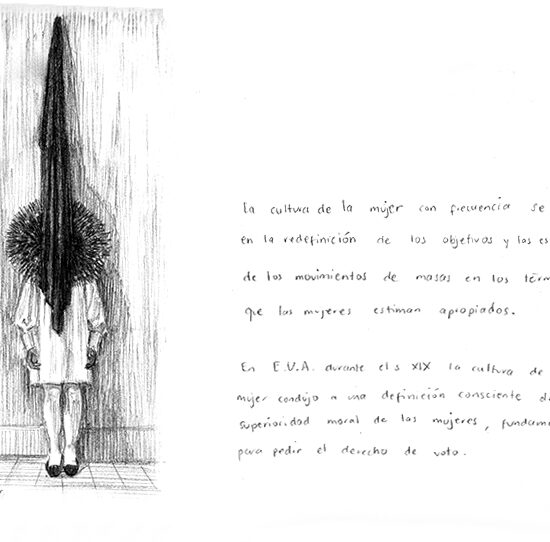 la cultura de la mujer con frecuencia se
en la redefinición de los objetivos y las es
de los movimientos de masas en los térm
que las mujeres estiman apropiados.
En E.U.A. durante el s XIX la cultura de
mujer condujo a una definición consciente d
superioridad moral de las mujeres, fundam
para pedir el derecho de voto.